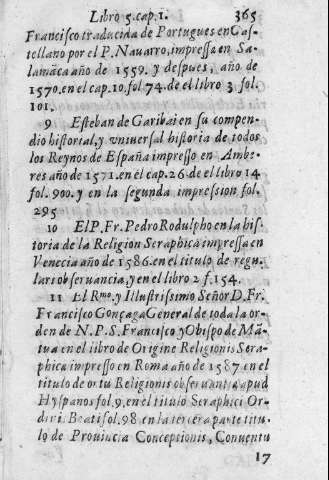 Libro 5. cap. 1. 365
Francisco traducida de Portugues en Cas-
tellano por el P. Nauarro, impressa en Sa-
lamãca año de 1559. y despues, año de
1570. en el cap. 10. fol. 74. de el libro 3. fol.
101.
9 Esteban de Garibai en su compen-
dio historial, y vniuersal historia de todos
los Reynos de España impresso en Ambe-
res año de 1571. en el cap. 26 de el libro 14
fol. 900. y en la segunda impression fol.
295
10 El P. Fr. Pedro Rodulpho en la his-
toria de la Religion Seraphica impressa en
Venecia año de 1586. en el titulo de regu-
lari obseruancia, y en el libro 2 f. 154.
11 El Rmo. y Illustrissimo Señor D. Fr.
Francisco Gonçaga General de toda la or-
den de N. P. S. Francisco y Obispo de Mã-
tua en el libro de Origine Religionis Sera-
phica impresso en Roma año de 1587 en el
titulo de ortu Religionis obseruantiæ apud
Hyspanos fol. 9. en el titulo Seraphici Or-
dini Beati fol. 98 en la tercera parte titu-
lo de Prouincia Conceptionis, Conuentu
17